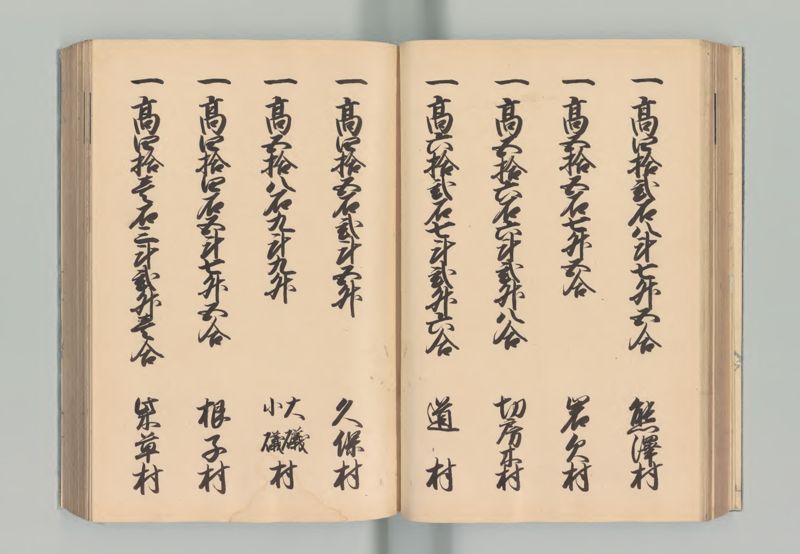 一 高四拾弐石八斗七升五合 熊澤村
一 高五拾五石七升五合 岩欠村
一 高五拾六石六斗弐升八合 切房木村
一 高六拾弐石七斗弐升六合 道村
一 高四拾五石弐斗五升 久保村
一 高五拾八石九斗九升 大磯小磯村
一 高四拾四石五斗七升五合 根子村
一 高四拾壱石三斗弐升壱合 柴草村